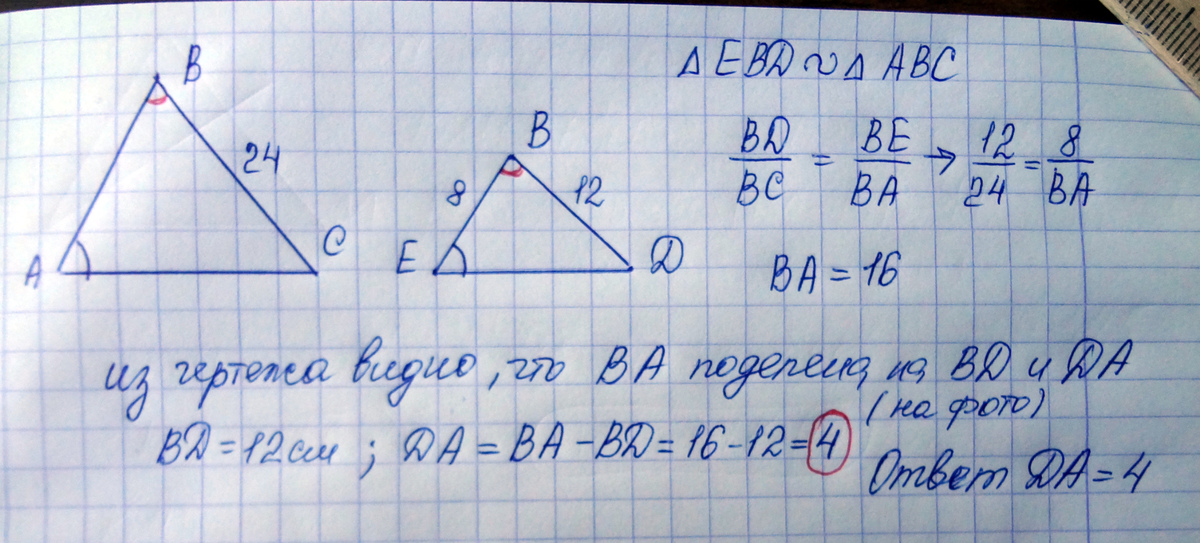 B
24
A
C
B
8
12
E
D
Δ EBD ∾ Δ ABC
BD/BC = BE/BA → 12/24 = 8/BA
BA = 16
из чертежа видно, что BA поделена на BD и DA
(на фото)
BD = 12 см ; DA = BA − BD = 16 − 12 = 4
Ответ DA = 4